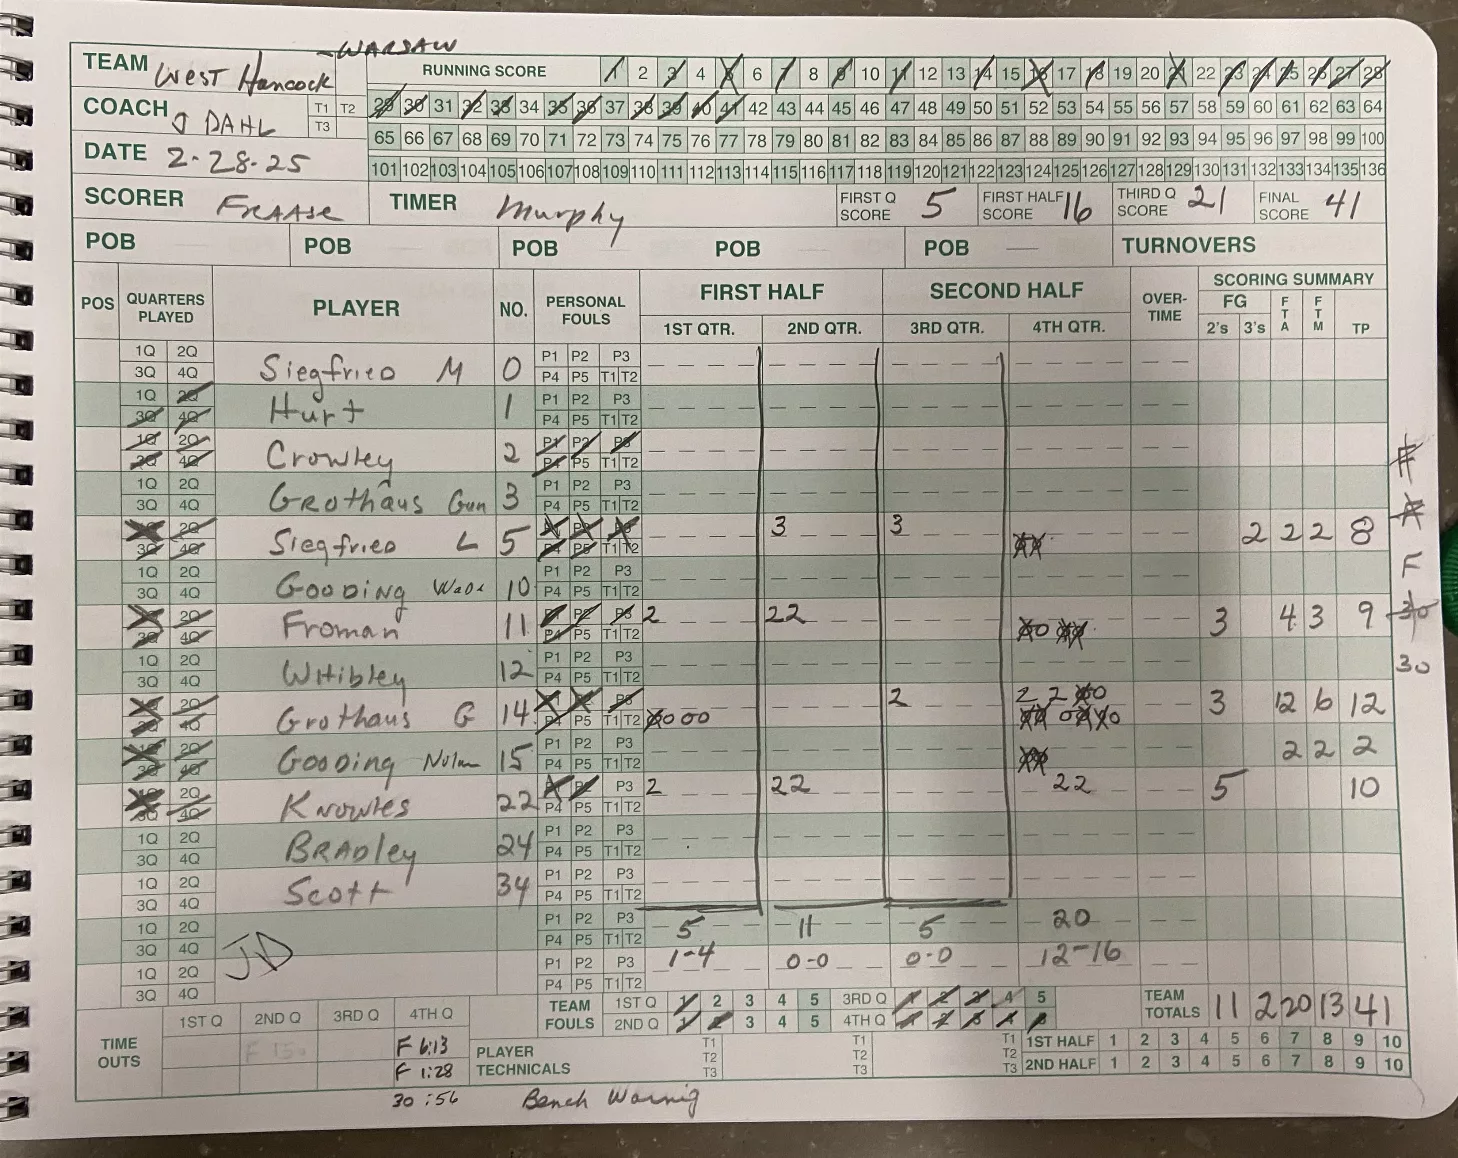 -WARSAW
TEAM West Hancock
RUNNING SCORE 1 2 3 4 5 6 7 8 9 10 11 12 13 14 15 16 17 18 19 20 21 22 23 24 25 26 27 28
COACH J DAHL T1 T2 T3
29 30 31 32 33 34 35 36 37 38 39 40 41 42 43 44 45 46 47 48 49 50 51 52 53 54 55 56 57 58 59 60 61 62 63 64
65 66 67 68 69 70 71 72 73 74 75 76 77 78 79 80 81 82 83 84 85 86 87 88 89 90 91 92 93 94 95 96 97 98 99 100
DATE 2-28-25
101 102 103 104 105 106 107 108 109 110 111 112 113 114 115 116 117 118 119 120 121 122 123 124 125 126 127 128 129 130 131 132 133 134 135 136
SCORER FRAASE TIMER Murphy FIRST Q SCORE 5 FIRST HALF SCORE 16 THIRD Q SCORE 21 FINAL SCORE 41
POB POB POB POB POB TURNOVERS
POS QUARTERS PLAYED PLAYER NO. PERSONAL FOULS FIRST HALF SECOND HALF OVER-TIME SCORING SUMMARY
1ST QTR. 2ND QTR. 3RD QTR. 4TH QTR. FG 2's 3's FTA FTM TP
1Q 2Q Siegfried M 0 P1 P2 P3
3Q 4Q P4 P5 T1 T2
1Q 2Q Hurt 1 P1 P2 P3
3Q 4Q P4 P5 T1 T2
1Q 2Q Crowley 2 P1 P2 P3
3Q 4Q P4 P5 T1 T2
1Q 2Q Grothaus Gun 3 P1 P2 P3
3Q 4Q P4 P5 T1 T2
1Q 2Q Siegfried L 5 P1 P2 P3 3 3 2 2 2 8
3Q 4Q P4 P5 T1 T2
1Q 2Q Gooding Wade 10 P1 P2 P3
3Q 4Q P4 P5 T1 T2 F
1Q 2Q Froman 11 P1 P2 P3 2 22 3 4 3 9 30
3Q 4Q P4 P5 T1 T2
1Q 2Q Whibley 12 P1 P2 P3 30
3Q 4Q P4 P5 T1 T2
1Q 2Q Grothaus G 14 P1 P2 P3 2 2 2 3 12 6 12
3Q 4Q P4 P5 T1 T2
1Q 2Q Gooding Nolan 15 P1 P2 P3 2 2 2
3Q 4Q P4 P5 T1 T2
1Q 2Q Knowles 22 P1 P2 P3 2 22 22 5 10
3Q 4Q P4 P5 T1 T2
1Q 2Q Bradley 24 P1 P2 P3
3Q 4Q P4 P5 T1 T2
1Q 2Q Scott 34 P1 P2 P3
3Q 4Q P4 P5 T1 T2
1Q 2Q P1 P2 P3 5 11 5 20
3Q 4Q JD P4 P5 T1 T2
1Q 2Q P1 P2 P3 1-4 0-0 0-0 12-16
3Q 4Q P4 P5 T1 T2
TEAM FOULS 1ST Q 1 2 3 4 5 3RD Q 1 2 3 4 5 TEAM TOTALS 11 2 20 13 41
2ND Q 1 2 3 4 5 4TH Q 1 2 3 4 5
TIME OUTS 1ST Q 2ND Q 3RD Q 4TH Q
F 6:13
F 1:28
30 :56
PLAYER TECHNICALS T1 T2 T3 T1 T2 T3 T1 T2 T3
1ST HALF 1 2 3 4 5 6 7 8 9 10
2ND HALF 1 2 3 4 5 6 7 8 9 10
Bench Warnig